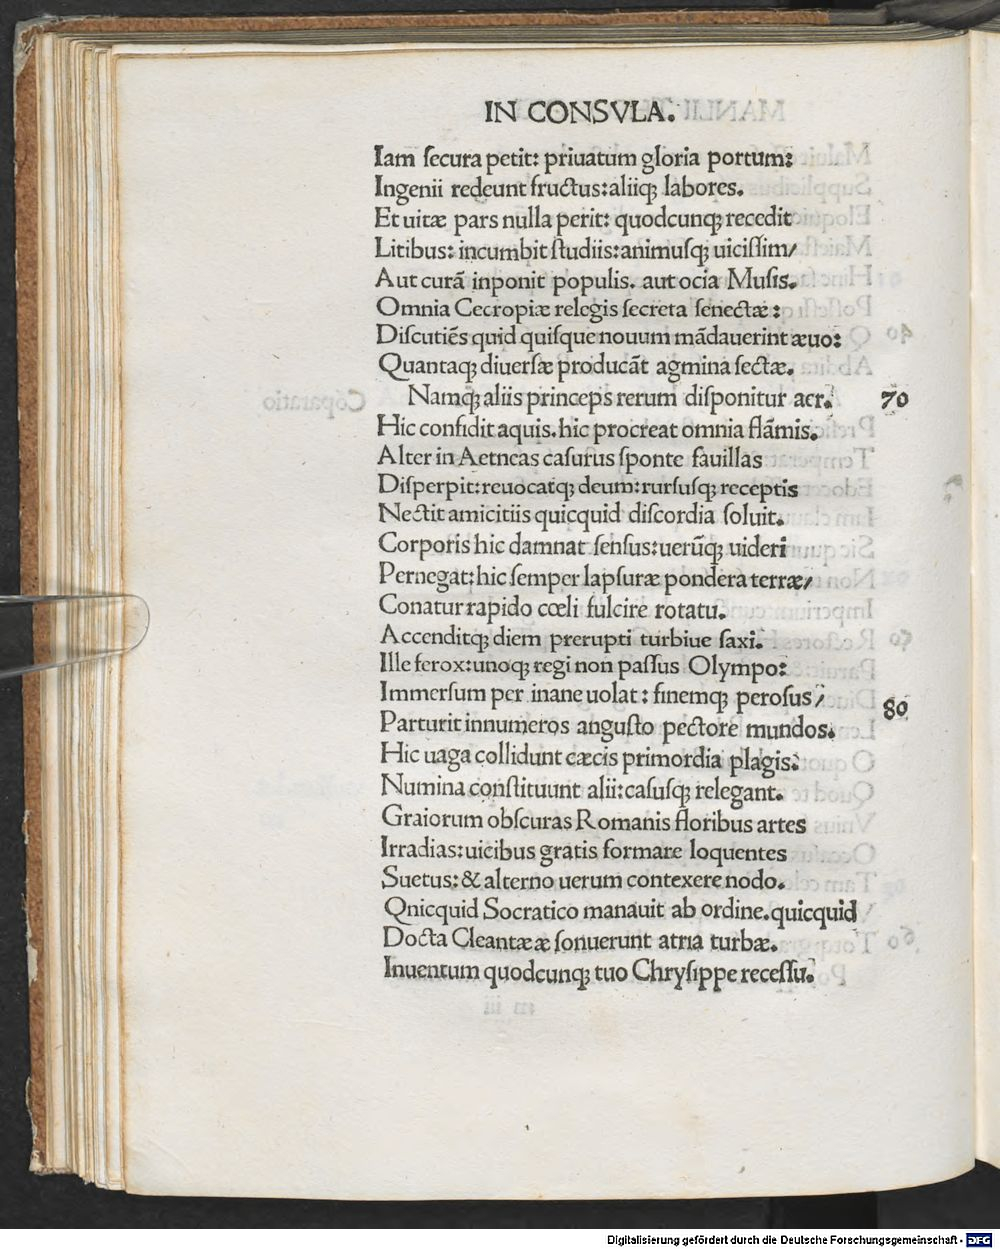 IN CONSVLA.
Iam ſecura petit: priuatum gloria portum:
Ingenii redeunt fructus: aliiqꝫ labores.
Et uitæ pars nulla perit: quodcunqꝫ recedit
Litibus: incumbit ſtudiis: animuſqꝫ uiciſſim/
Aut curã inponit populis. aut ocia Muſis.
Omnia Cecropiæ relegis ſecreta ſenectæ:
Diſcutiẽs quid quiſque nouum mãdauerint æuo:
Quantaqꝫ diuerſæ producãt agmina ſectæ.
Namqꝫ aliis princeps rerum diſponitur aer. 70
Hic confidit aquis. hic procreat omnia flãmis.
Alter in Aetneas caſurus ſponte fauillas
Diſperpit: reuocatqꝫ deum: rurſuſqꝫ receptis
Nectit amicitiis quicquid diſcordia ſoluit.
Corporis hic damnat ſenſus: uerũqꝫ uideri
Pernegat: hic ſemper lapſuræ pondera terræ/
Conatur rapido cœli fulcire rotatu.
Accenditqꝫ diem prerupti turbiue ſaxi.
Ille ferox: unoqꝫ regi non paſſus Olympo:
Immerſum per inane uolat: finemqꝫ peroſus/ 80
Parturit innumeros anguſto pectore mundos.
Hic uaga collidunt cæcis primordia plagis.
Numina conſtituunt alii: caſuſqꝫ relegant.
Graiorum obſcuras Romanis floribus artes
Irradias: uicibus gratis formare loquentes
Suetus: & alterno uerum contexere nodo.
Qnicquid Socratico manauit ab ordine. quicquid
Docta Cleantææ ſonuerunt atria turbæ.
Inuentum quodcunqꝫ tuo Chryſippe receſſu.
Digitalisierung gefördert durch die Deutsche Forschungsgemeinschaft - DFG